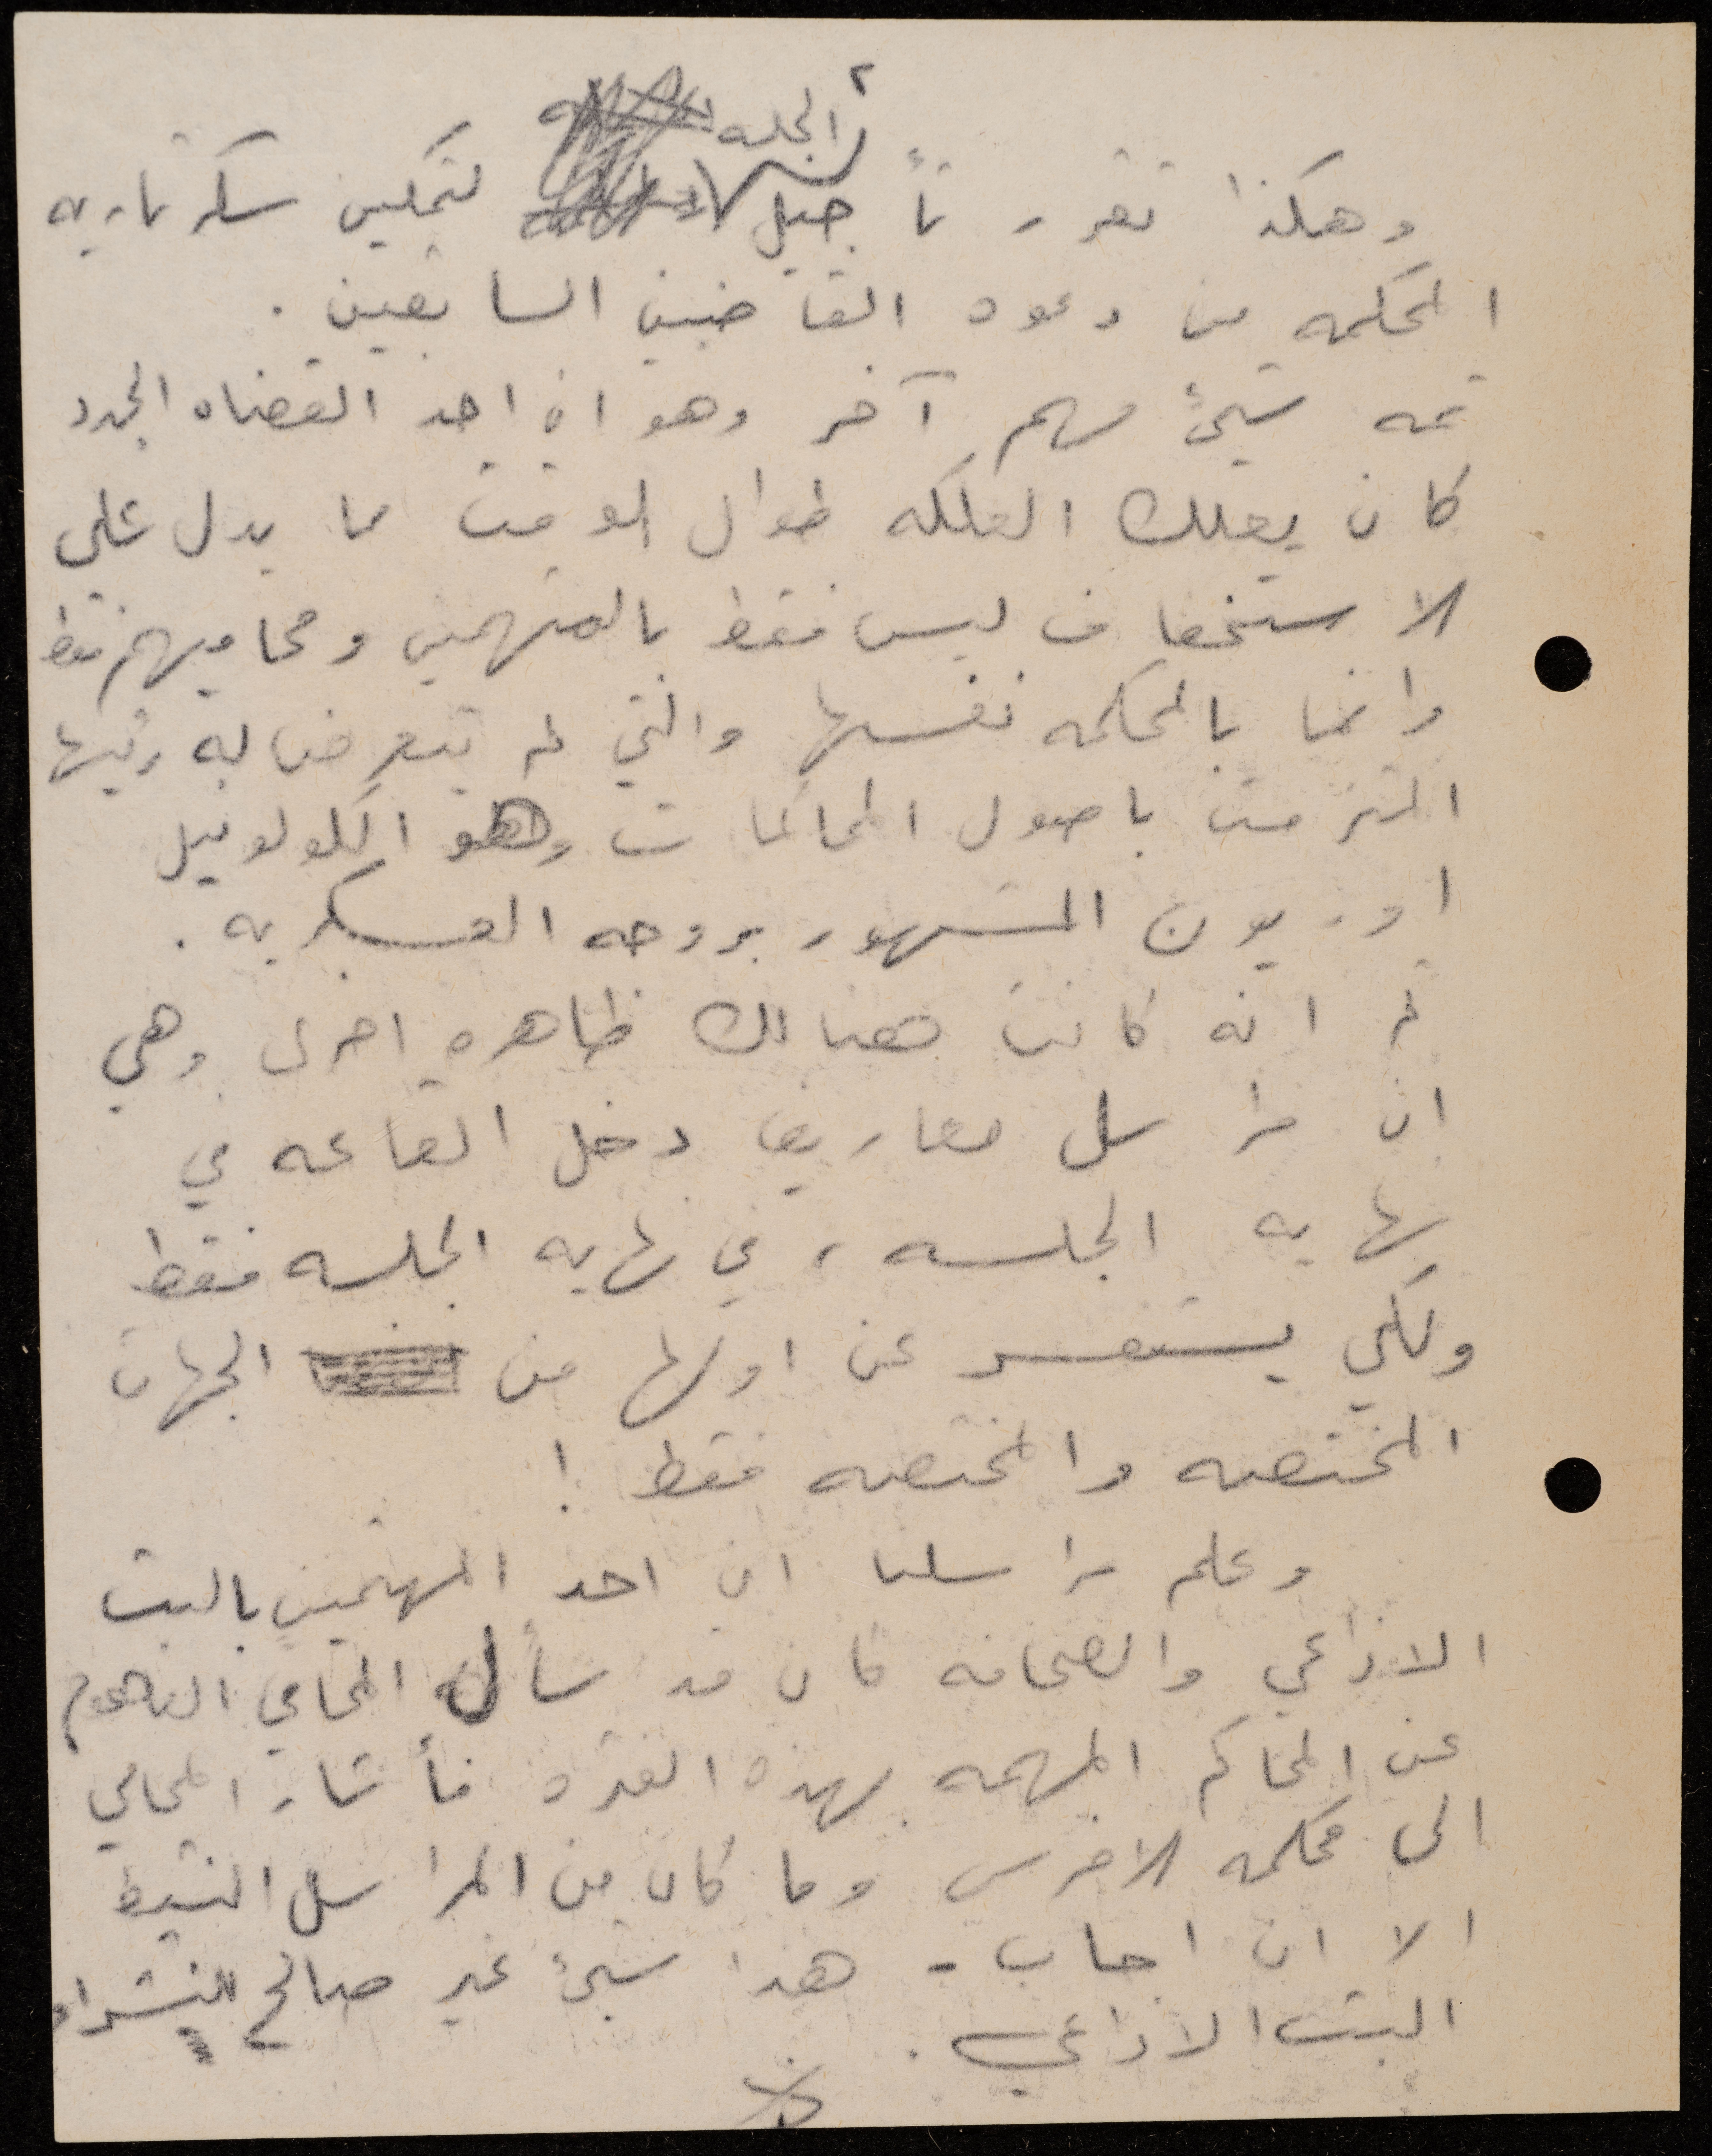 ٢
الجلسه
وهكذا تقرر تأجيل لتمكين سكرتاريه
المحكمه من دعوه القاضيين السابقين .
ثمه شيئ مهم آخر وهو ان احد القضاه الجدد
كان يعلك العلكه طوال الوقت مما يدل على
الاستخفاف ليس فقط بالمتهمين ومحاميهم فقط
وانما بالمحكمه نفسها والتي لم يتعرض له رئيسها
التزمت باصول المحاكمات وهو الكولونيل
اوريون المشهور بروحه العسكريه .
ثم انه كانت هنالك ظاهره اخرى وهي
ان مراسل معاريف دخل القاعه في
نهايه الجلسه ، في نهايه الجلسه فقط
ولكي يستفسر عن اولها من الجهات
المختصه والمختصه فقط !
وعلم مراسلنا ان احد المهتمين بالبث
الاذاعي والصحافه كان قد سأل المحامي
عن المحاكم المهمه بهذه الفتره فأشار المحامي
الى محكمه الاخرس وما كان من المراسل النشيط
الا ان اجاب - هذا شيئ غير صالح للنشر او
البث الاذاعي .